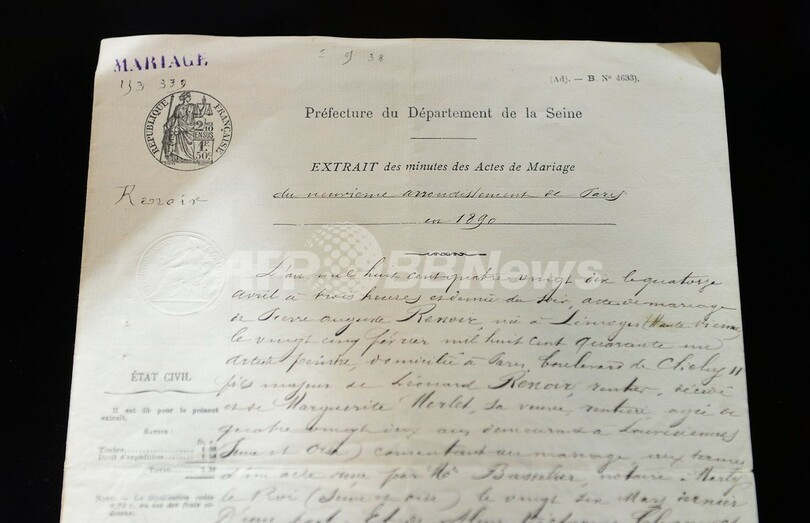 MARIAGE
153 339
(Adj. — B. N° 4633).
RÉPUBLIQUE FRANÇAISE
2/10 EN SUS
1F 50c
Préfecture du Département de la Seine
EXTRAIT des minutes des Actes de Mariage
du neuvième arrondissement de Paris
Renoir
en 1890
AFP BBNews
L'an mil huit cent quatre vingt dix le quatorze
avril à trois heures et demie du soir, acte de mariage
de Pierre Auguste Renoir, né à Limoges (Haute Vienne)
le vingt cinq février mil huit cent quarante un
artiste peintre, domicilié à Paris, boulevard de Clichy 11
fils majeur de Léonard Renoir, rentier, décédé
et de Marguerite Merlet, sa veuve, rentière, âgée de
quatre vingt deux ans demeurant à Louveciennes
(Seine et Oise) consentant au mariage aux termes
d'un acte reçu par Me notaire à Marly
le Roi (Seine et Oise) le vingt six Mars dernier
ÉTAT CIVIL
Il est dû pour le présent
extrait.
Timbre
Droit d'expédition
Total